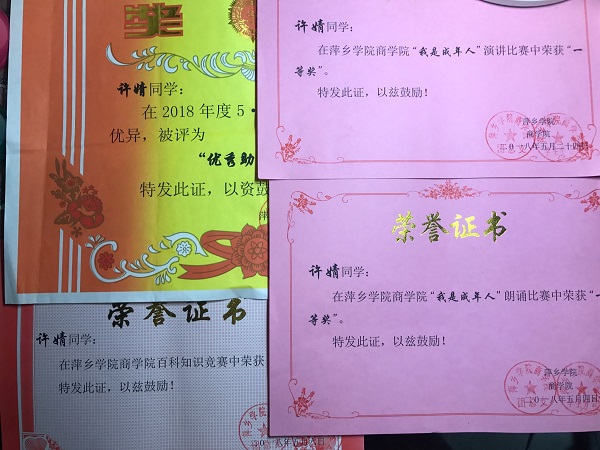 奖
许婧同学：
在 2018 年度 5·
优异，被评为
“优秀助
特发此证，以资鼓
许婧同学：
在萍乡学院商学院“我是成年人”演讲比赛中荣获“一
等奖”。
特发此证，以兹鼓励！
萍乡学院
商学院
二〇一八年五月二十四日
荣誉证书
许婧同学：
在萍乡学院商学院“我是成年人”朗诵比赛中荣获“一
等奖”。
特发此证，以兹鼓励！
萍乡学院
商学院
二〇一八年五月四日
荣誉证书
许婧同学：
在萍乡学院商学院百科知识竞赛中荣获
特发此证，以兹鼓励！